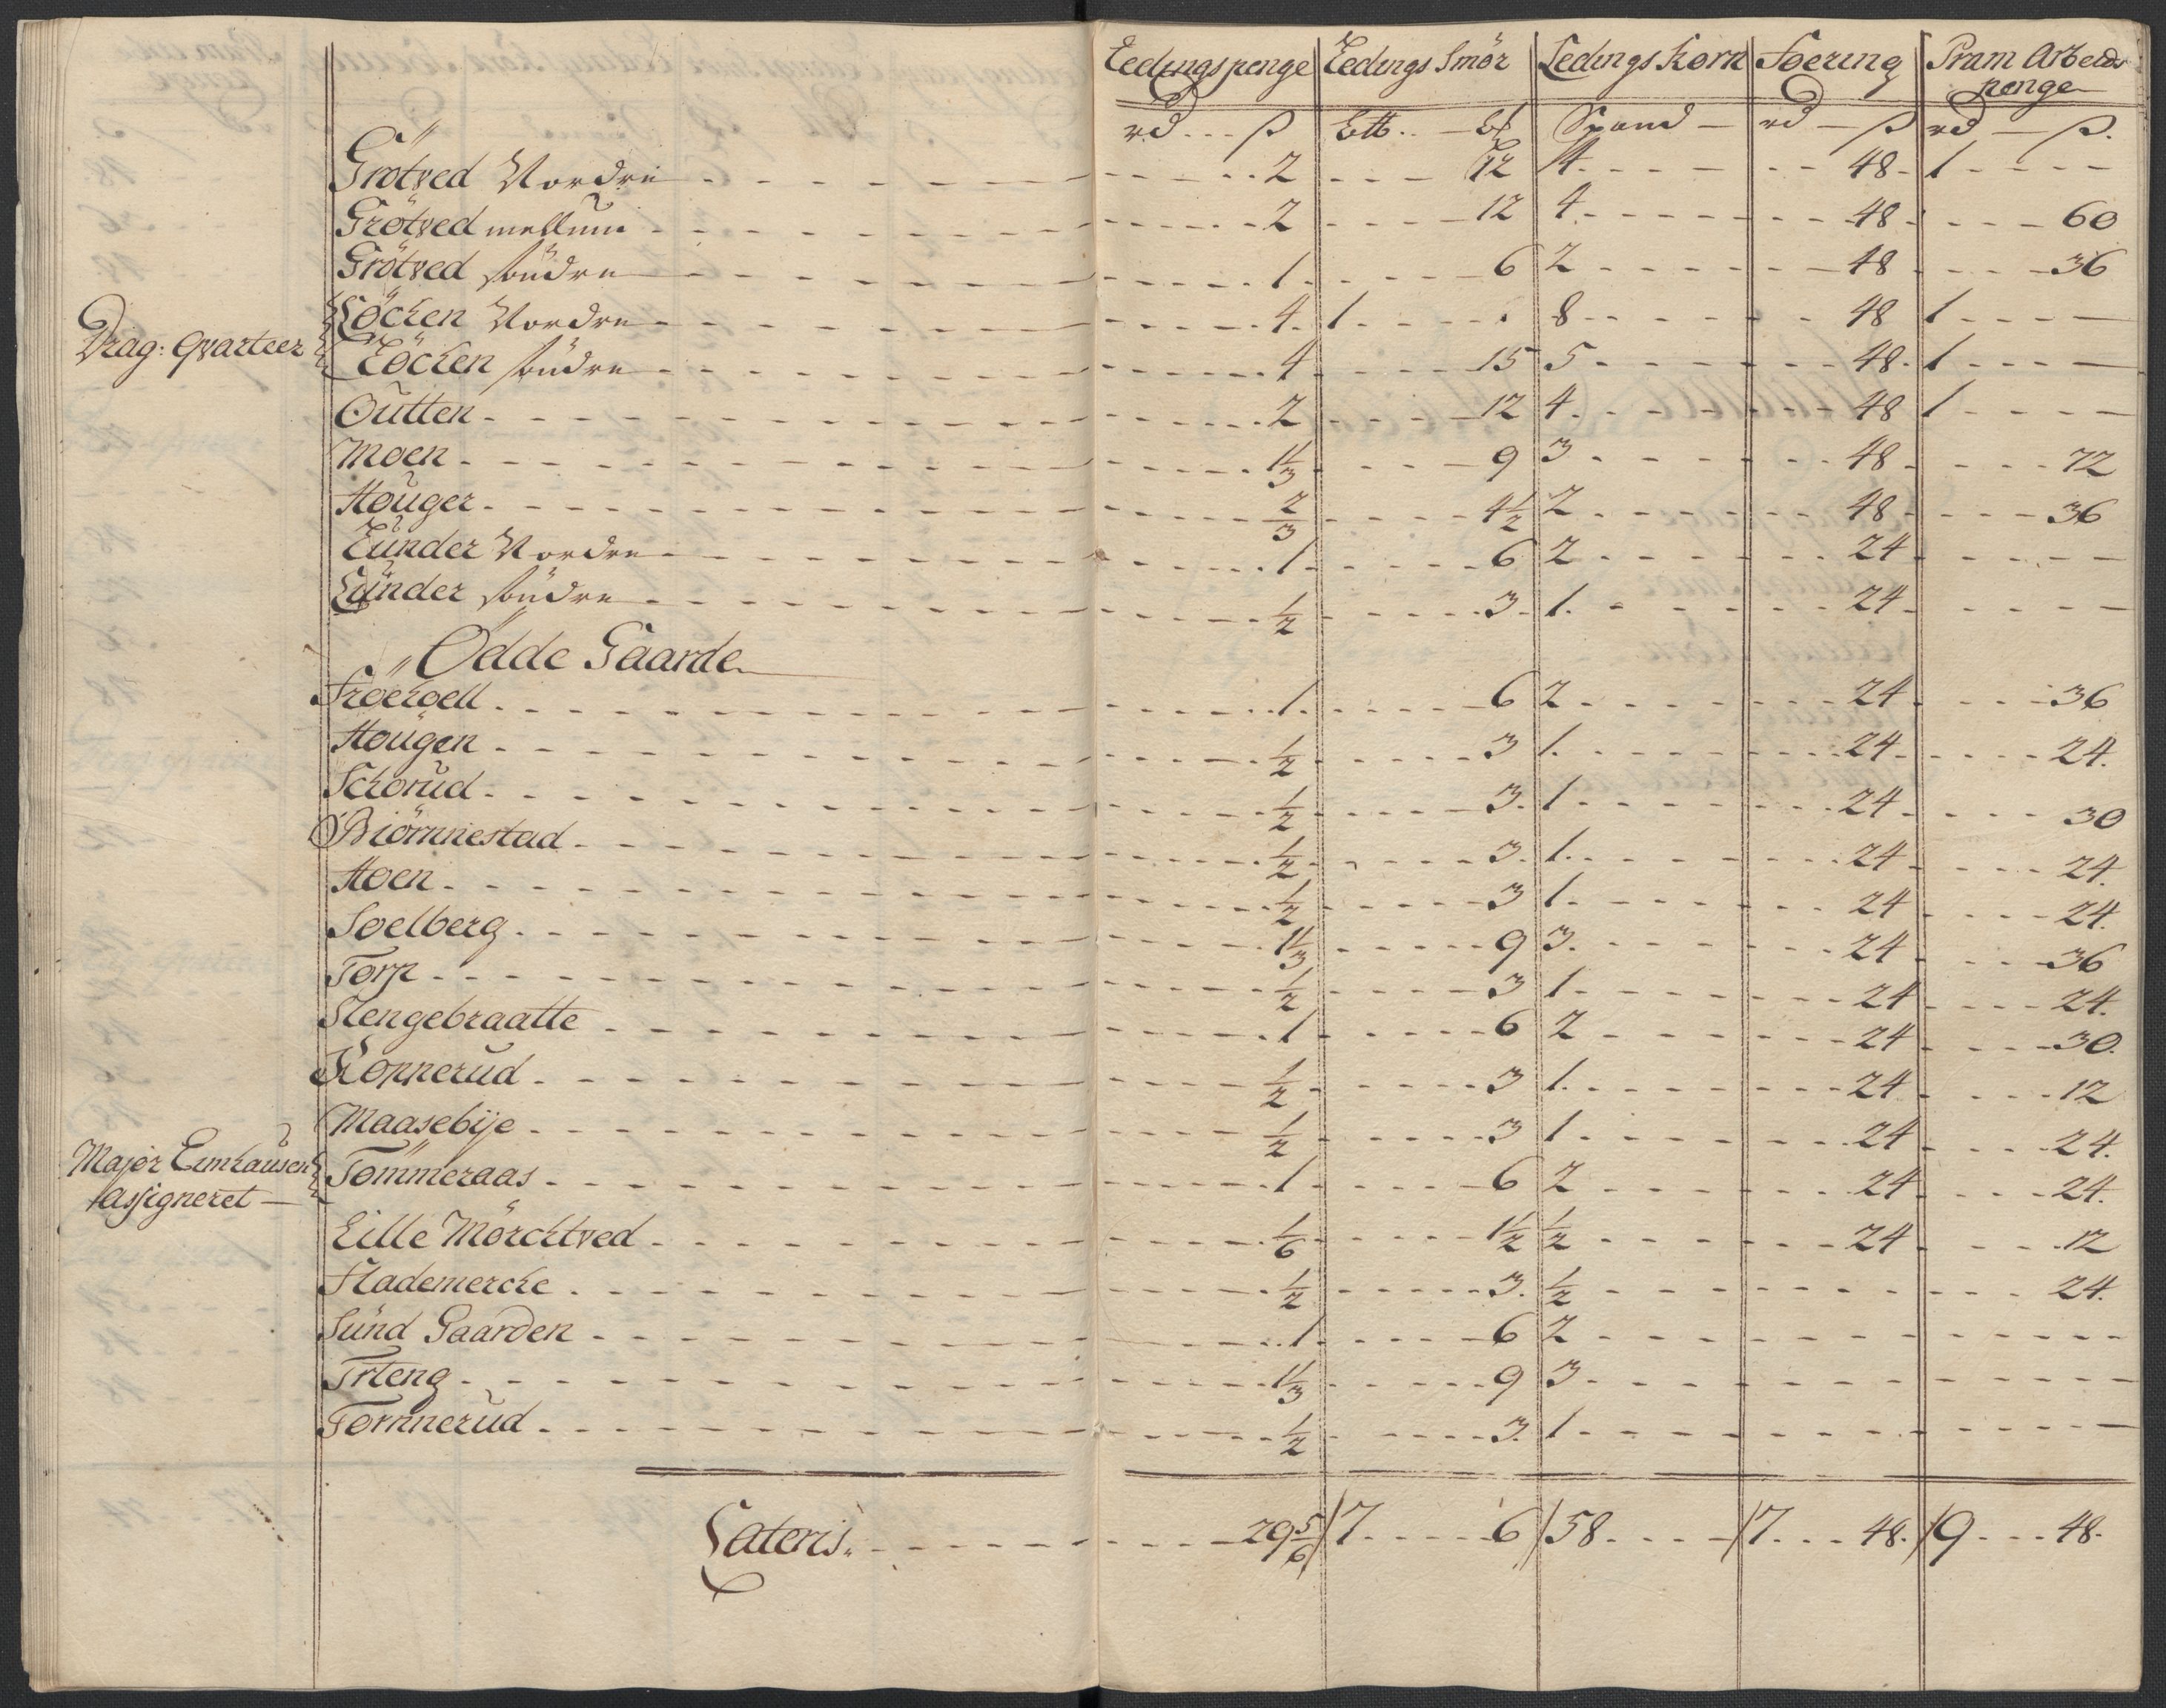 Ledings penge | Ledings Smör | Ledings Korn | Foering | Pram Arbeids penge
rd --- ß | Btt -- | Spand -- | rd -- ß | rd -- ß.
Grötved Nordre - - - 2 | - - - 12 | 4 - - - | - - 48 | 1 - - -
Grötved mellum - - - 2 | - - - 12 | 4 - - - | - - 48 | - - - 60
Grötved söndre - - - 1 | - - - 6 | 2 - - - | - - 48 | - - - 36
Löchen Nordre - - - 4 | 1 - - - | 8 - - - | - - 48 | 1 - - -
Drag: Qvarteer Löchen söndre - - - 4 | - - - 15 | 5 - - - | - - 48 | 1 - - -
Outten - - - 2 | - - - 12 | 4 - - - | - - 48 | 1 - - -
Moen - - - 1 1/3 | - - - 9 | 3 - - - | - - 48 | - - - 72
Houger - - - 2/3 | - - - 4 1/2 | 2 - - - | - - 48 | - - - 36
Lunder Nordre - - - 1 | - - - 6 | 2 - - - | - - 24 | - - -
Lunder söndre - - - 1/2 | - - - 3 | 1 - - - | - - 24 | - - -
Ödde Gaarde
Froeholl - - - 1 | - - - 6 | 2 - - - | - - 24 | - - - 36
Hougen - - - 1/2 | - - - 3 | 1 - - - | - - 24 | - - - 24.
Schorud - - - 1/2 | - - - 3 | 1 - - - | - - 24 | - - - 30
Biörnnestad - - - 1/2 | - - - 3 | 1 - - - | - - 24 | - - - 24.
Hoen - - - 1/2 | - - - 3 | 1 - - - | - - 24 | - - - 24.
Soelberg - - - 1 1/3 | - - - 9 | 3 - - - | - - 24 | - - - 36
Torp - - - 1/2 | - - - 3 | 1 - - - | - - 24 | - - - 24.
Slengebraatte - - - 1 | - - - 6 | 2 - - - | - - 24 | - - - 30.
Kopperud - - - 1/2 | - - - 3 | 1 - - - | - - 24 | - - - 12
Maasebije - - - 1/2 | - - - 3 | 1 - - - | - - 24 | - - - 24.
Major Eimhausen Assigneret Tömmeraas - - - 1 | - - - 6 | 2 - - - | - - 24 | - - - 24.
Lille Mörchtved - - - 1/6 | - - - 1 1/2 | 1/2 - - - | - - 24 | - - - 12
Flademerche - - - 1/2 | - - - 3 | 1/2 - - - | - - - | - - - 24.
Sund Gaarden - - - 1 | - - - 6 | 2 - - - | - - - | - - -
Trteng - - - 1 1/3 | - - - 9 | 3 - - - | - - - | - - -
Tornnerud - - - 1/2 | - - - 3 | 1 - - - | - - - | - - -
Lateris - - - 29 5/6 | 7 - - - 6 | 58 - - - | 7 - - - 48. | 9 - - - 48.